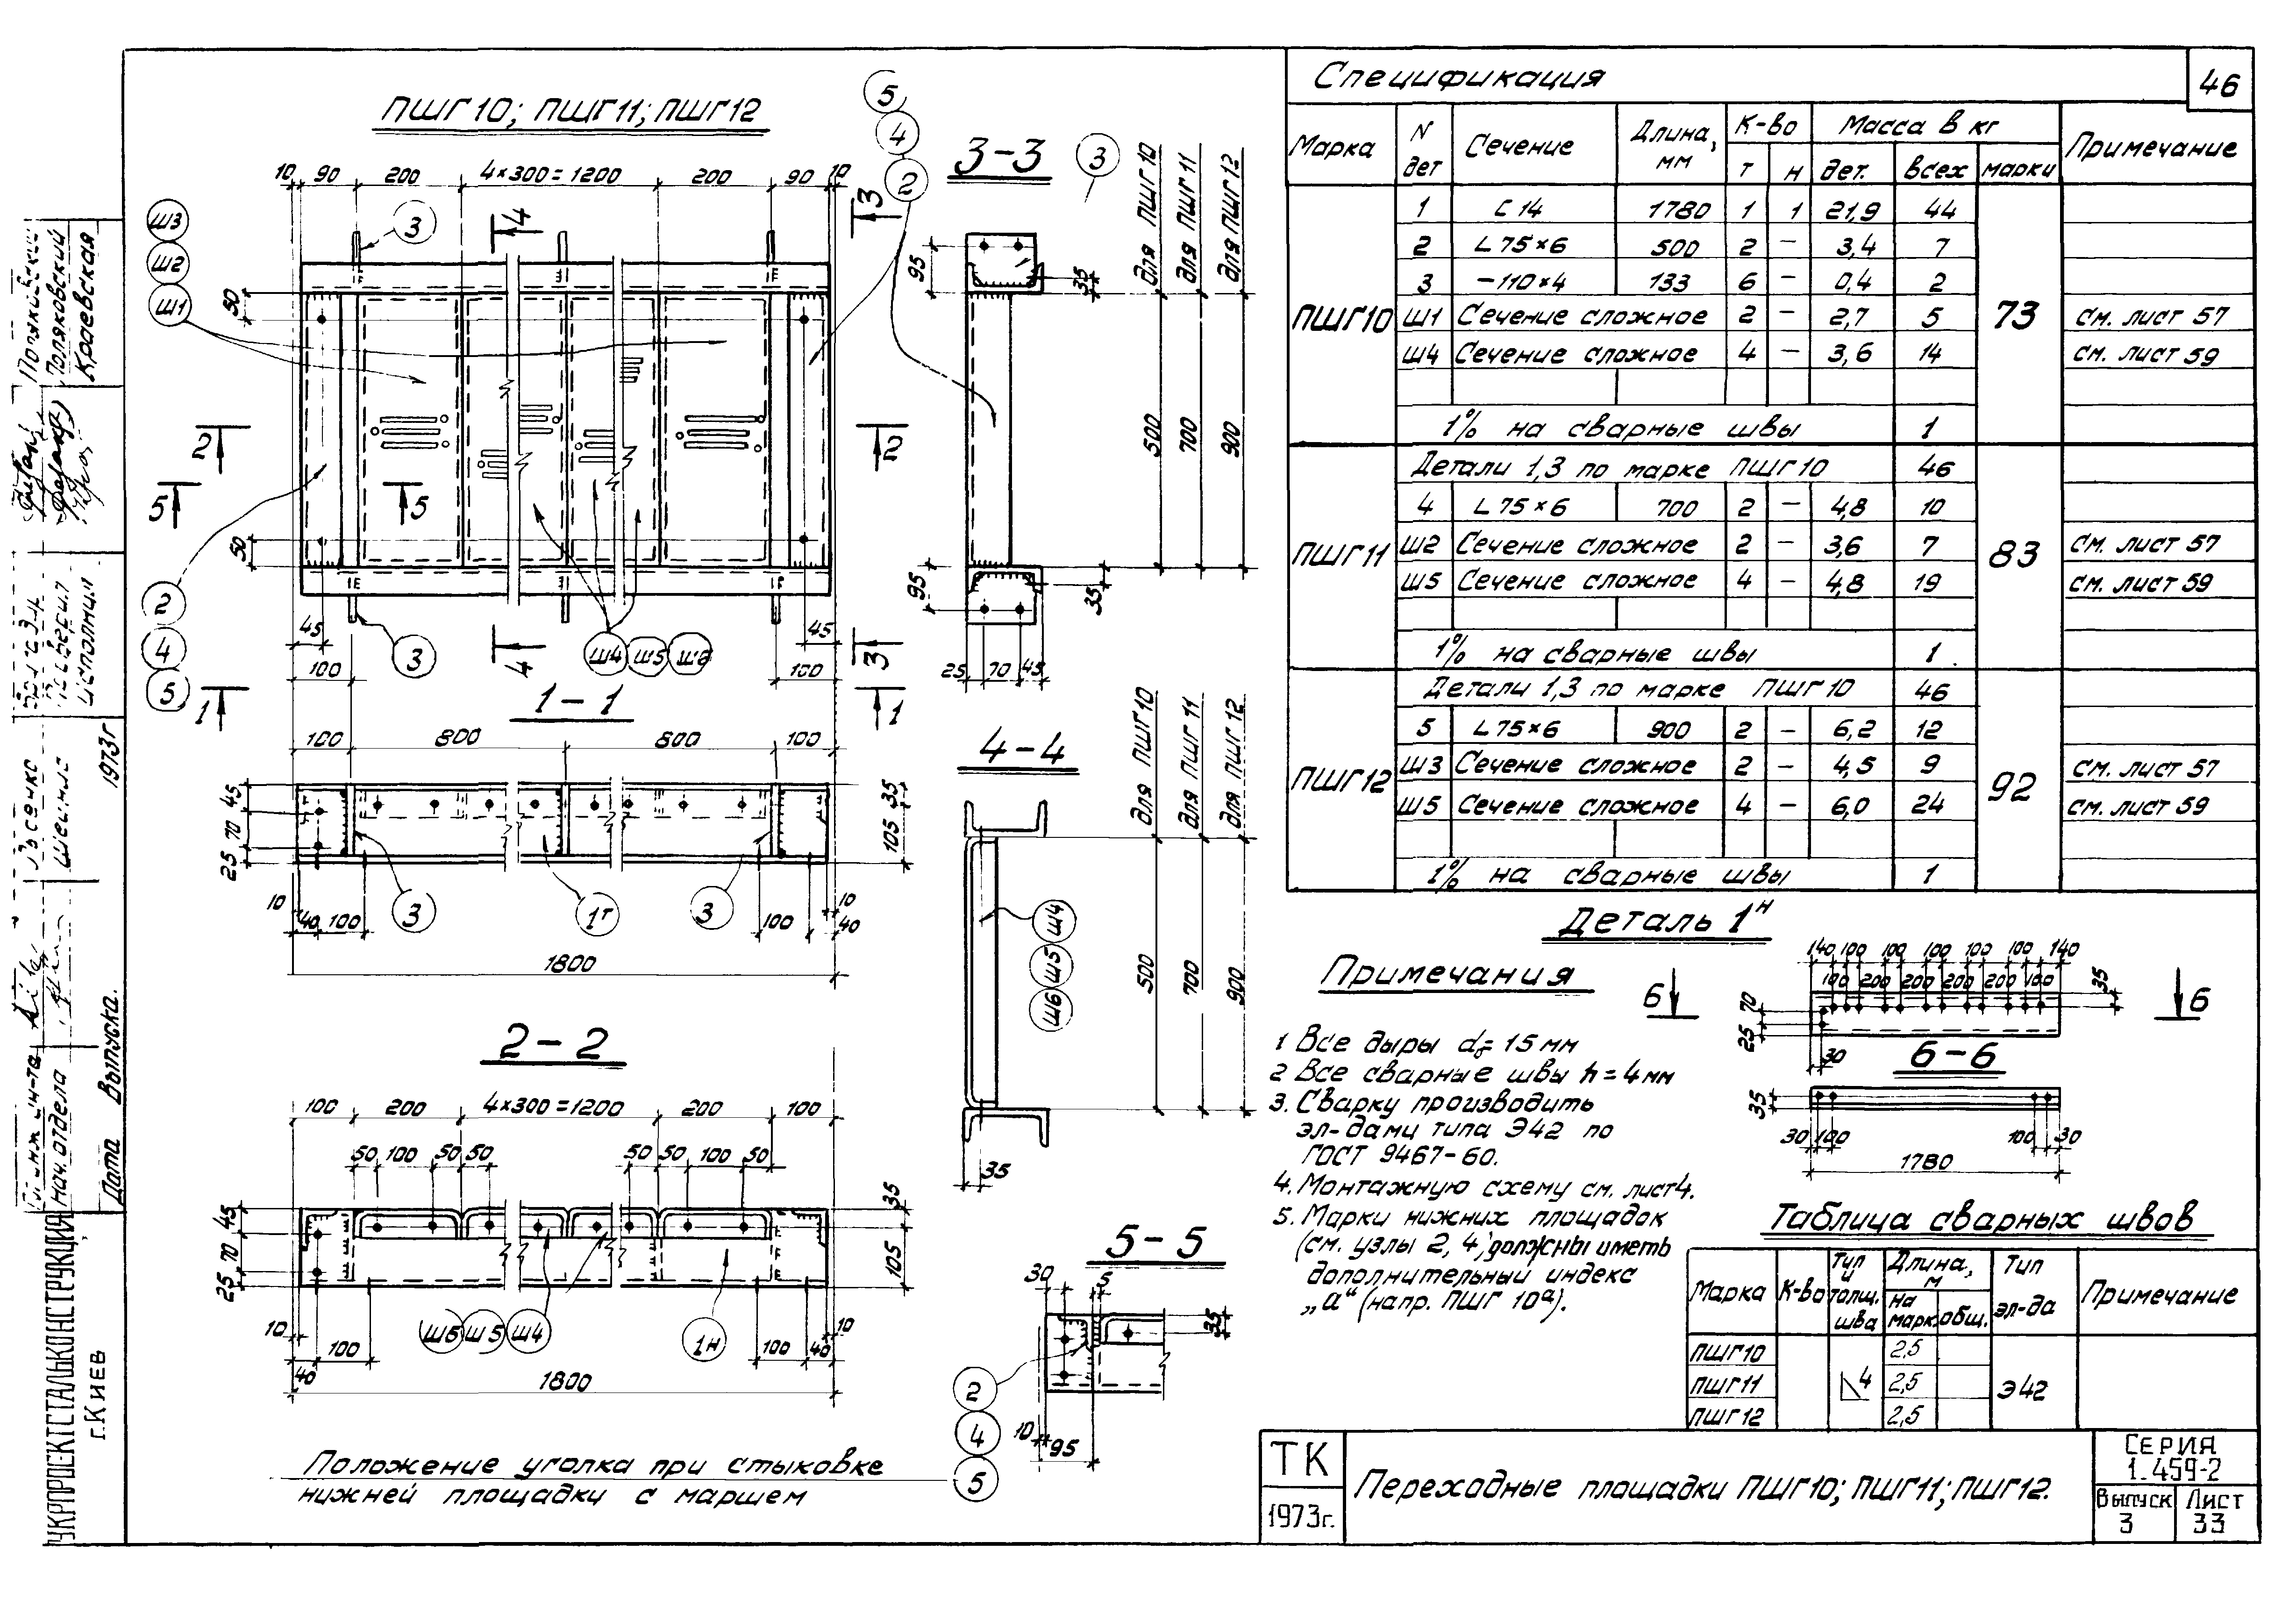 46
ПШГ10; ПШГ11; ПШГ12
10 90 200 4×300=1200 200 90 10
Ш3
Ш2
Ш1
3
5
4
2
50
50
2 2
5 5
4 4
3 3
45 45
100 100
2
4
5
3
Ш4 Ш5 Ш6
1 1
1-1
100 800 800 100
45
70
25
35
105
10 40 100 100 10 40
3 1т 3
1800
2-2
100 200 4×300=1200 200 100
50 100 50 50 50 50 100 50
45
70
25
35
105
Ш6 Ш5 Ш4 1н
10 40 100 100 40 10
1800
Положение уголка при стыковке
нижней площадки с маршем
3-3
3
для ПШГ10
для ПШГ11
для ПШГ12
95 35
500 700 900
95 35
25 70 45
4-4
для ПШГ10
для ПШГ11
для ПШГ12
Ш4
Ш5
Ш6
500 700 900
35
5-5
30 5
35
2
4
5
10 95
Спецификация
Марка N дет Сечение Длина, мм К-во Масса в кг Примечание
т н дет. всех марки
ПШГ10 73
1 С 14 1780 1 1 21,9 44
2 L 75×6 500 2 – 3,4 7
3 –110×4 133 6 – 0,4 2
Ш1 Сечение сложное 2 – 2,7 5 см. лист 57
Ш4 Сечение сложное 4 – 3,6 14 см. лист 59
1% на сварные швы 1
ПШГ11 83
Детали 1,3 по марке ПШГ10 46
4 L 75×6 700 2 – 4,8 10
Ш2 Сечение сложное 2 – 3,6 7 см. лист 57
Ш5 Сечение сложное 4 – 4,8 19 см. лист 59
1% на сварные швы 1
ПШГ12 92
Детали 1,3 по марке ПШГ10 46
5 L 75×6 900 2 – 6,2 12
Ш3 Сечение сложное 2 – 4,5 9 см. лист 57
Ш5 Сечение сложное 4 – 6,0 24 см. лист 59
1% на сварные швы 1
Деталь 1н
140 100 100 100 100 100 140
100 200 200 200 200 100
35
70
25
30
6 6
6-6
35
30 100 100 30
1780
Примечания
1 Все дыры dб=15 мм
2 Все сварные швы h=4мм
3. Сварку производить
эл-дами типа Э42 по
ГОСТ 9467-60.
4. Монтажную схему см. лист 4.
5. Марки нижних площадок
(см. узлы 2, 4) должны иметь
дополнительный индекс
„а“ (напр. ПШГ 10а).
Таблица сварных швов
Марка К-во Тип и толщ. шва Длина, м Тип эл-да Примечание
на марк. общ.
ПШГ10 2,5
ПШГ11 4 2,5 Э42
ПШГ12 2,5
ТК
1973г.
Переходные площадки ПШГ10; ПШГ11; ПШГ12.
Серия
1.459-2
Выпуск
3
Лист
33
УКРПРОЕКТСТАЛЬКОНСТРУКЦИЯ
г. Киев
нач. отдела
Дата Выпуска.
1973г
Исполнил
Поляковский
Краевская